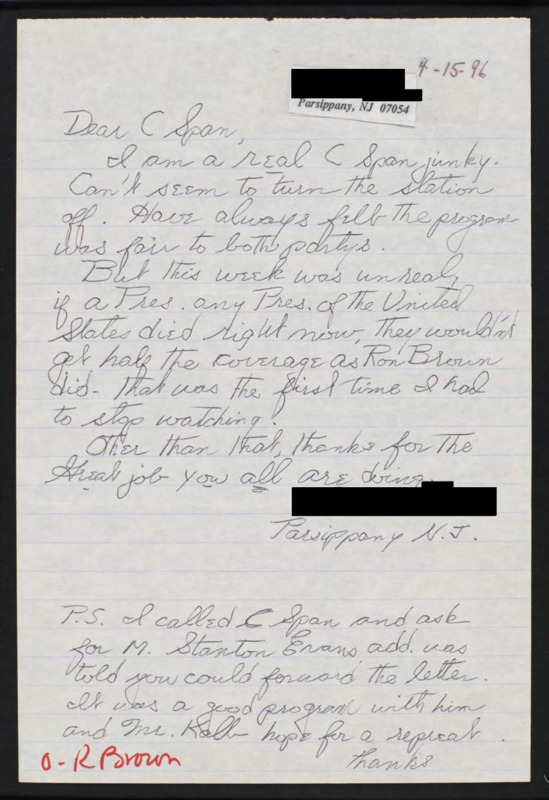 4-15-96
Parsippany, NJ 07054
Dear C Span,
I am a real C Span junky.
Can't seem to turn the station
off. Have always felt the program
was fair to both partys.
But this week was unreal,
if a Pres. any Pres. of the United
States died right now, they wouldn't
get half the coverage as Ron Brown
did- that was the first time I had
to stop watching.
Other than that, thanks for the
Great job you all are doing.
Parsippany N.J.
P.S. I called C Span and ask
for M. Stanton Evans add. was
told you could forward the letter.
It was a good program with him
and Mr. Kalb hope for a repreat.
Thanks
O-R Brown